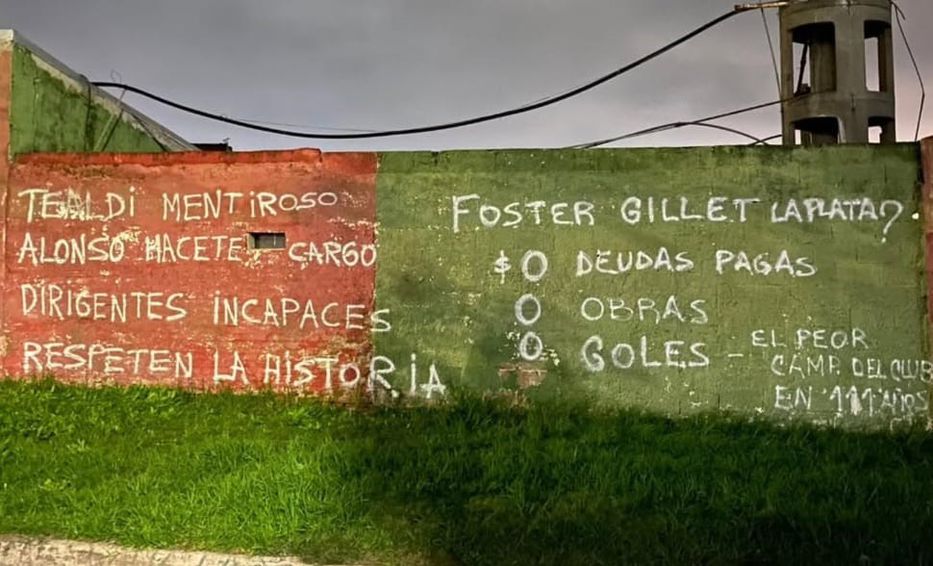 TEALDI MENTIROSO
ALONSO HACETE CARGO
DIRIGENTES INCAPACES
RESPETEN LA HISTORIA
FOSTER GILLET LA PLATA?
$0 DEUDAS PAGAS
0 OBRAS
0 GOLES - EL PEOR
CAMP. DEL CLUB
EN 111 AÑOS